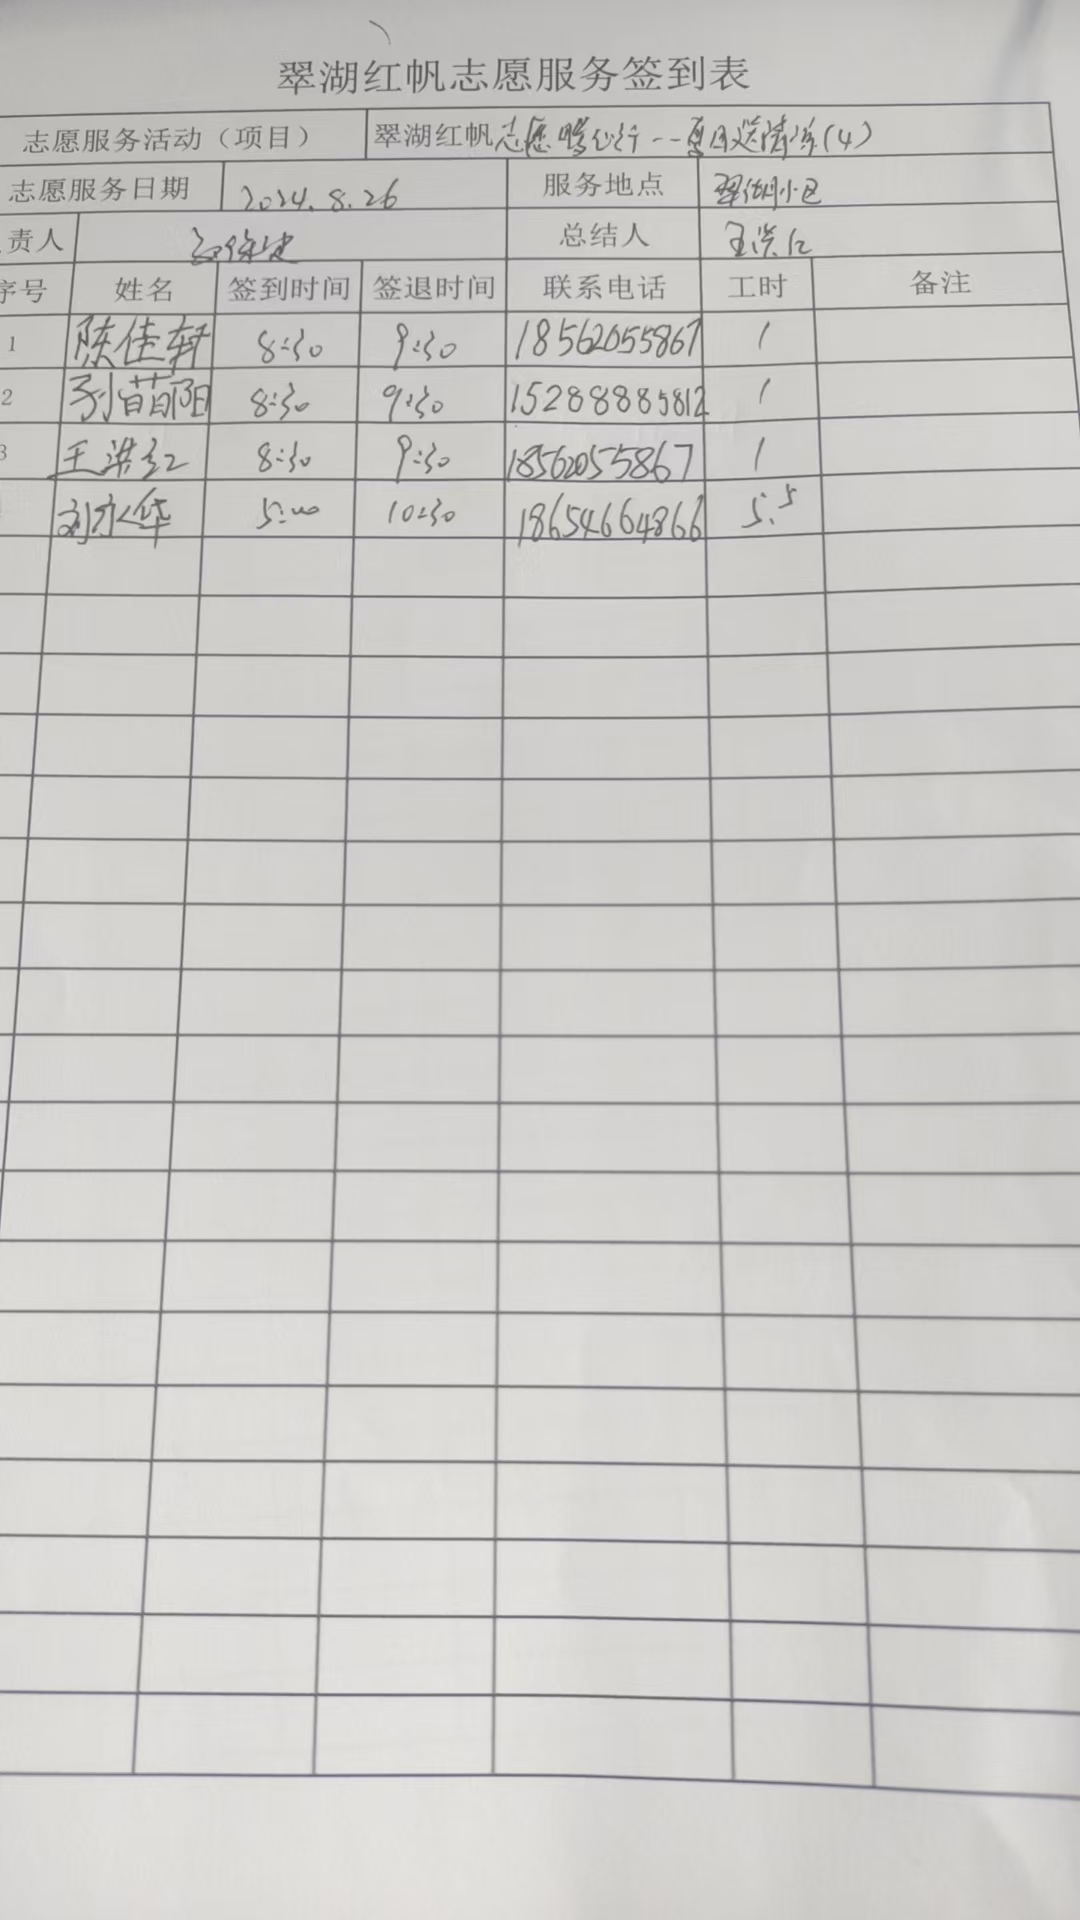 翠湖红帆志愿服务签到表
志愿服务活动（项目） 翠湖红帆志愿暖心行--夏日送清凉(4)
志愿服务日期 2024.8.26 服务地点 翠湖小区
责人 总结人 王洪红
序号 姓名 签到时间 签退时间 联系电话 工时 备注
1 陈佳轩 8:30 9:30 18562055867 1
2 孙苗阳 8:30 9:30 15288885812 1
3 王洪红 8:30 9:30 18562055867 1
刘永华 5:00 10:30 18654664866 5.5